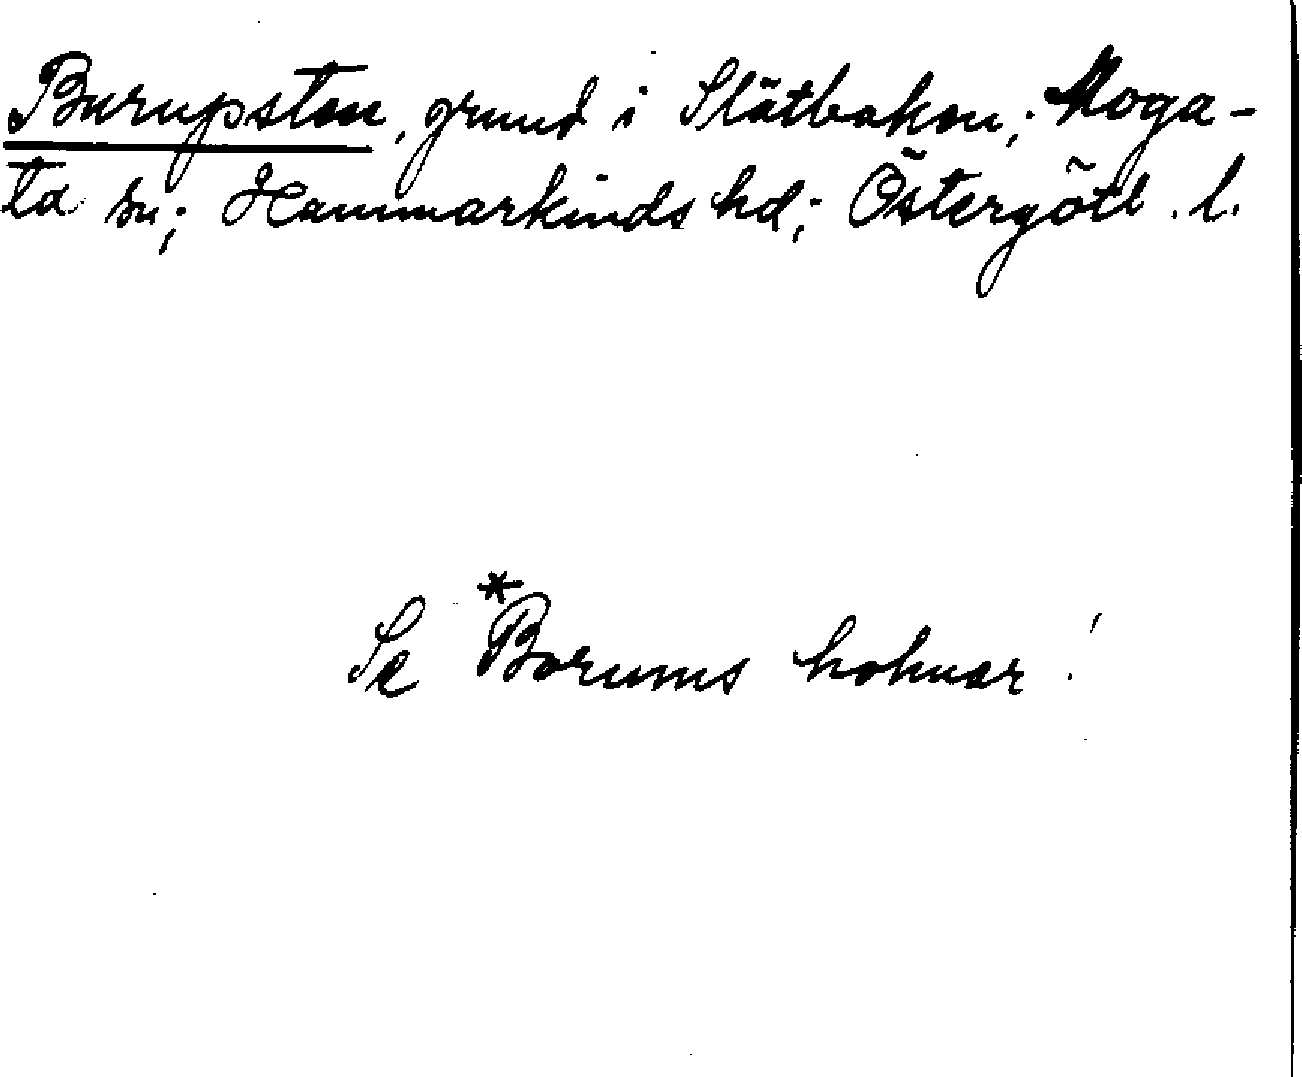 Burupsten, grund i Slätbaken; Moga-
ta sn; Hammarkinds hd; Östergötl. l.
Se *Borums holmar!